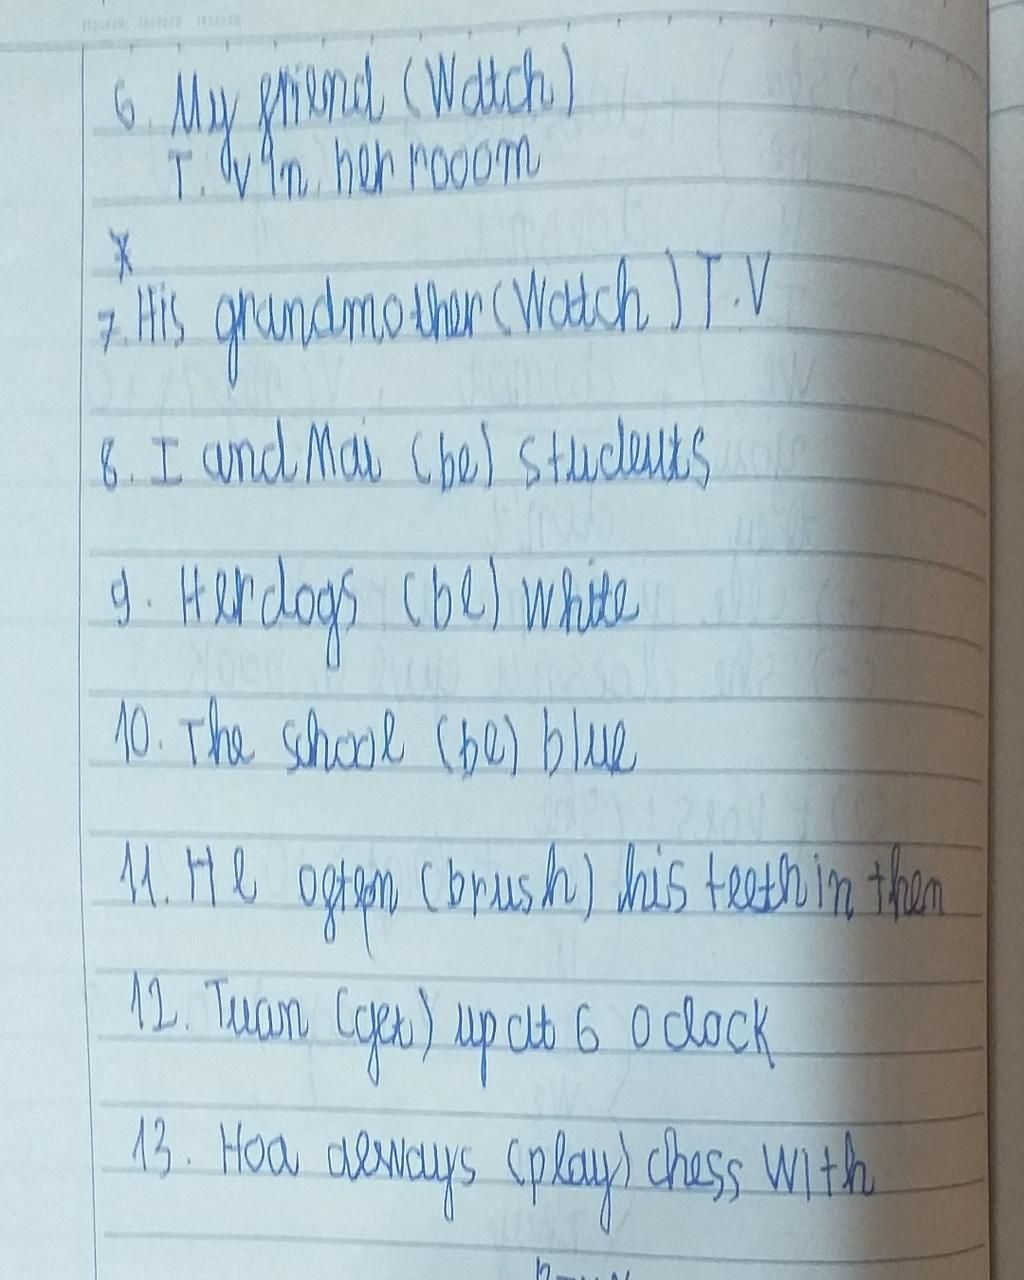 6. My friend (Watch)
T. V in her rooom
*
7. His grandmother (Watch) T.V
8. I and Mai (be) students
9. Her dogs (be) white
10. The school (be) blue
11. He ogten (brush) his teeth in them
12. Tuan (get) up at 6 o clock
13. Hoa always (play) chess With